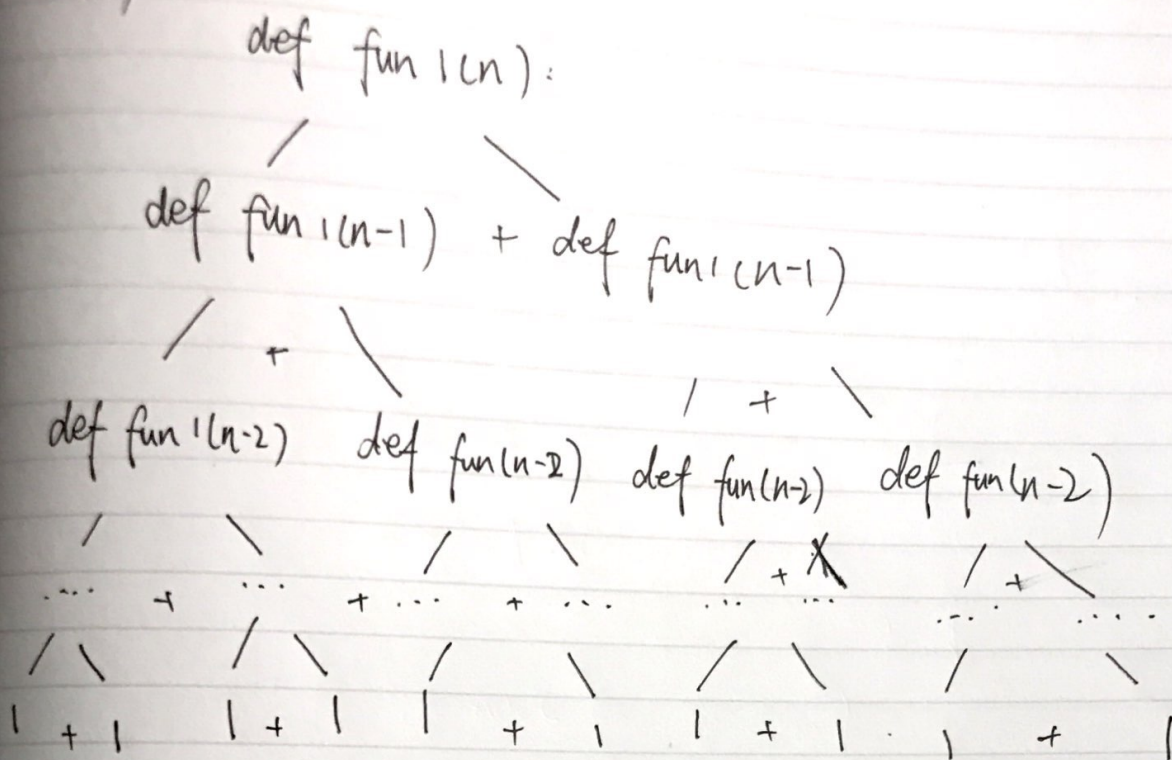 def fun1(n):
def fun1(n-1) + def fun1(n-1)
+ +
def fun1(n-2) def fun(n-2) def fun(n-2) def fun(n-2)
.... + ... + ... + ... ... + ... .... + ....
1 + 1 1 + 1 1 + 1 1 + 1 . 1 + 1